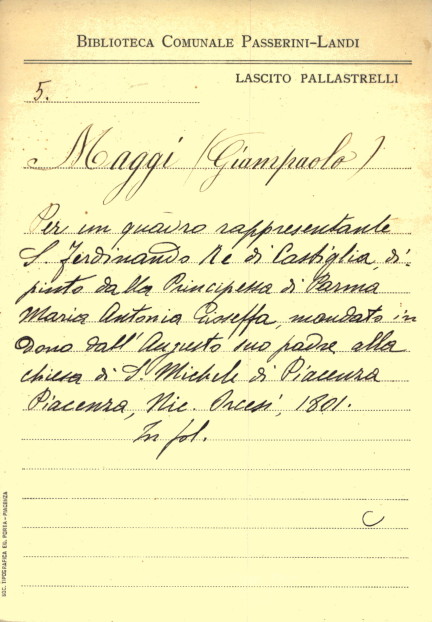 BIBLIOTECA COMUNALE PASSERINI-LANDI
LASCITO PALLASTRELLI
5.
Maggi (Giampaolo)
Per un quadro rappresentante
S. Ferdinando Re di Castiglia, di-
pinto dalla Principessa di Parma
Maria Antonia Gioseffa, mandato in
dono dall'Augusto suo padre alla
chiesa di S. Michele di Piacenza
Piacenza, Nic. Orcesi, 1801.
In fol.
C
SOC. TIPOGRAFICA ED. PORTA - PIACENZA